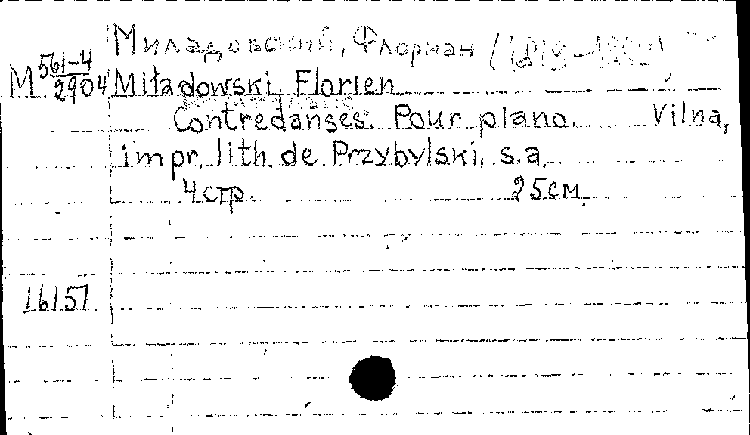 Миладовский, Флориан (1819-
М 561-4/2904 Miładowski, Florien
Contredanses. Pour piano. Vilna,
impr. lith. de Przybylski, s.a.
4 стр. 25 см.
16157